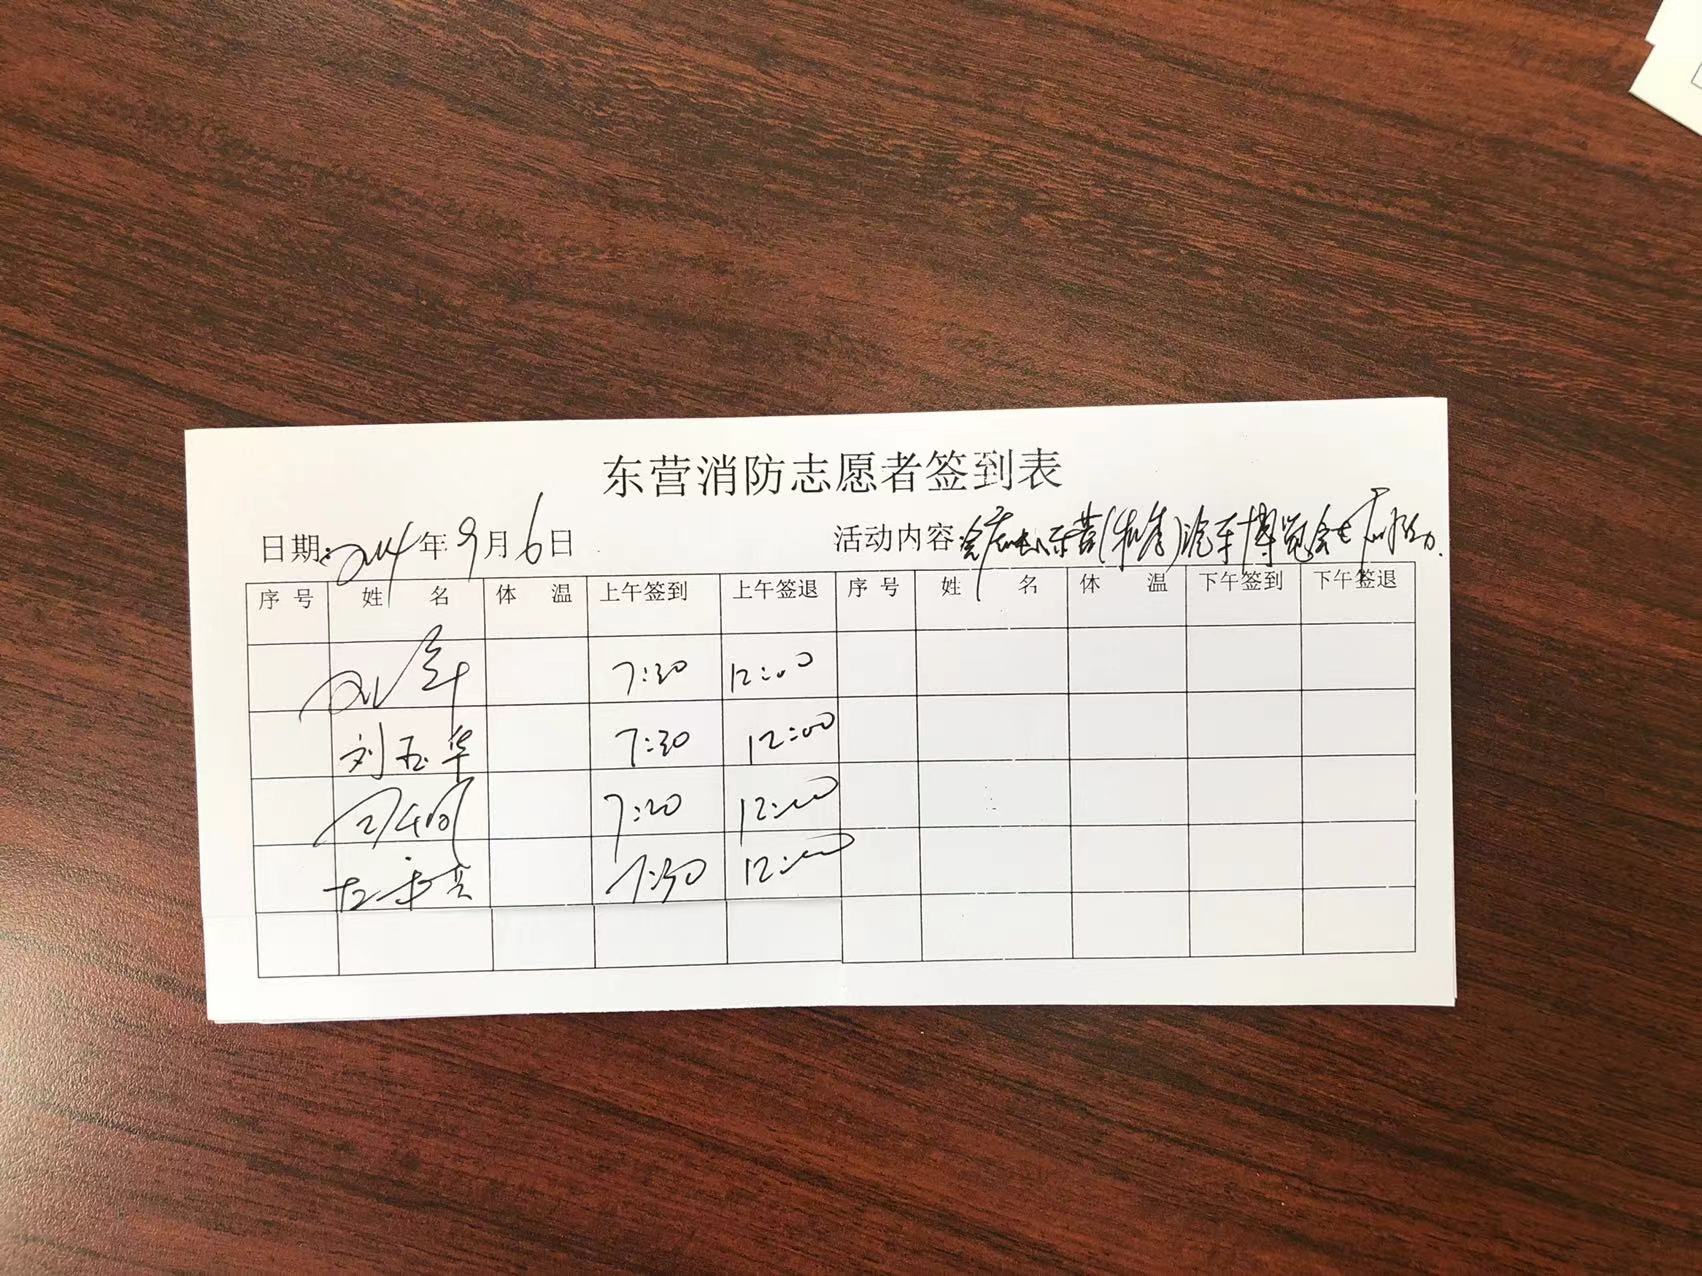 东营消防志愿者签到表
日期: 年9月6日 活动内容: 东营(秋季)汽车博览会
序号 姓名 体温 上午签到 上午签退 序号 姓名 体温 下午签到 下午签退
7:30 12:00
刘玉华 7:30 12:00
12:00
7:30 12:00